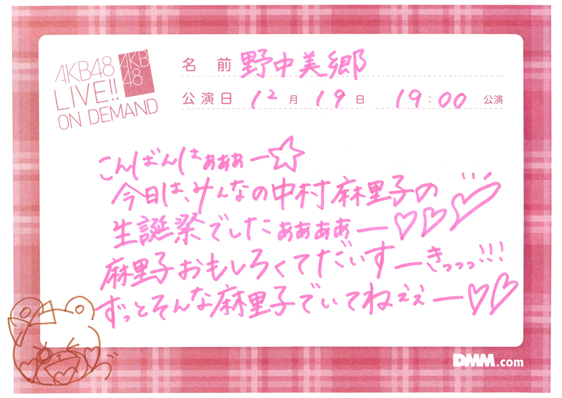 AKB48
LIVE!!
ON DEMAND
AKB
48
名前 野中美郷
公演日 12月19日 19:00 公演
こんばんはぁぁぁー☆
今日は、みんなの中村麻里子の
生誕祭でしたぁぁぁぁー♡♡♡
麻里子おもしろくてだいすーきっっっ!!!
ずっとそんな麻里子でいてねぇぇー♡♡
DMM.com